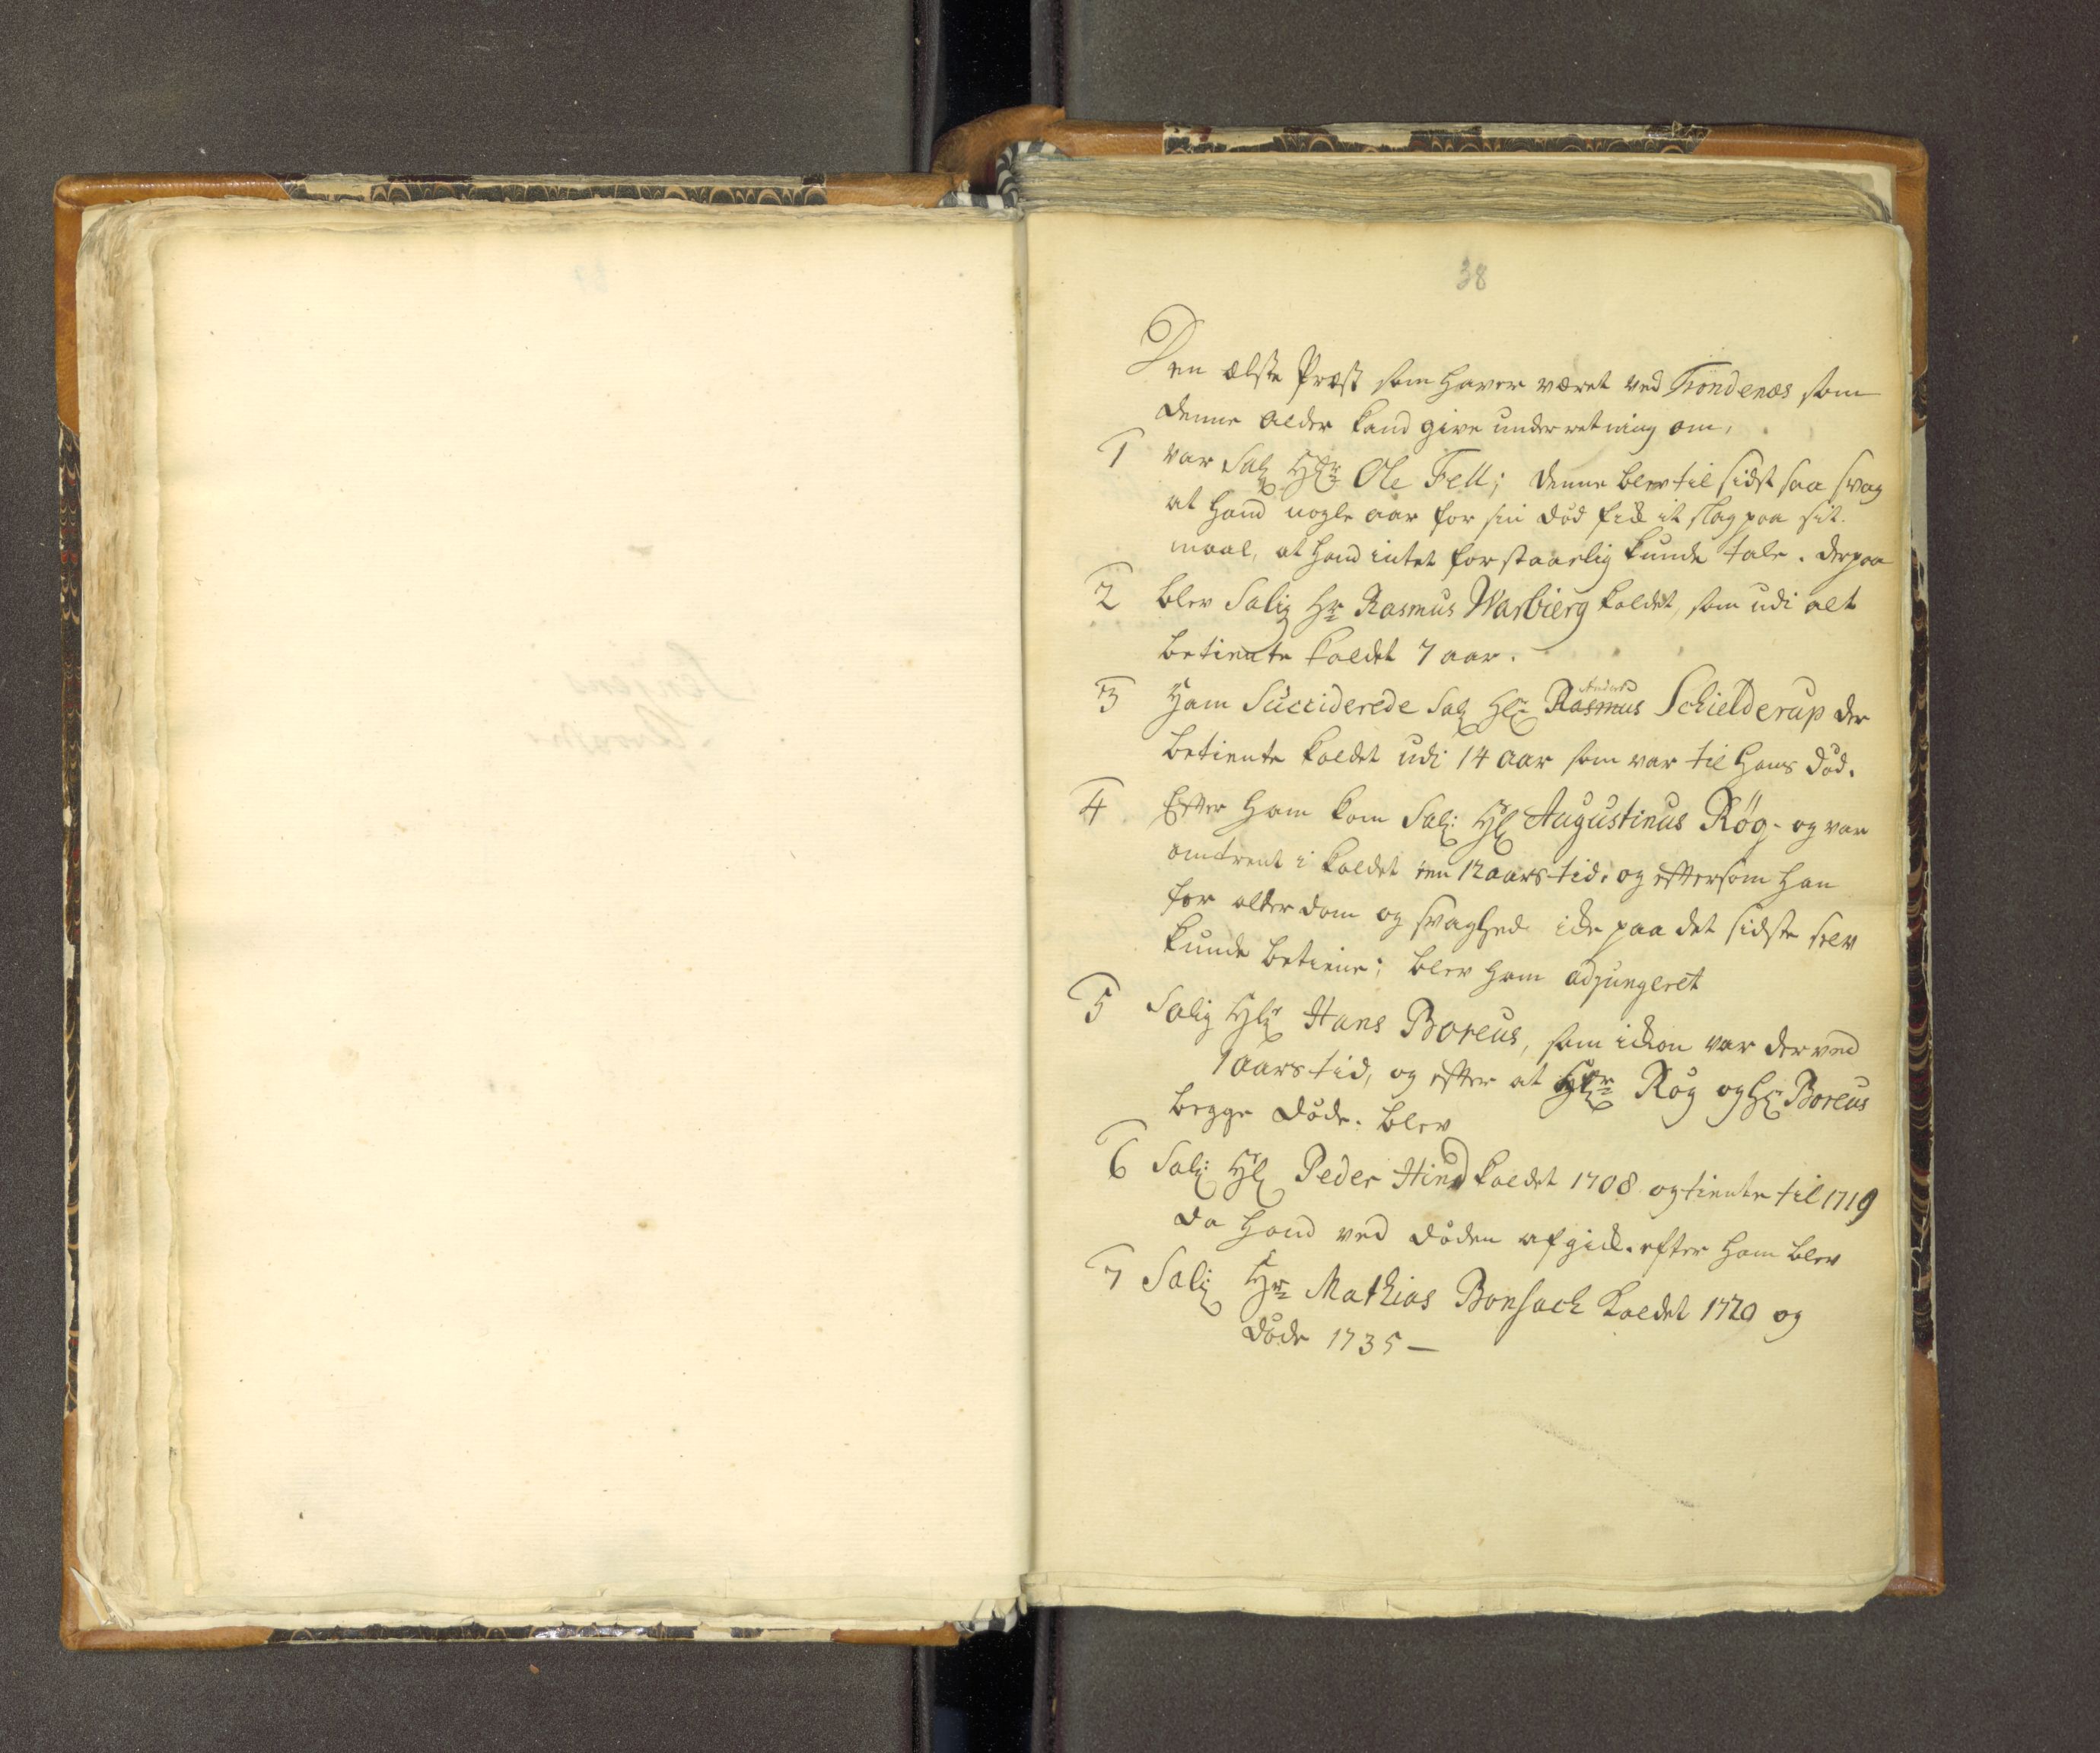 38
Den ælste Præst som haver været ved Trondenæs som
denne alder kand give underretning om,
1 var Salig Hr Ole Fell; denne blev til sidst saa svag
at hand nogle aar for sin död fik it slag paa sit
maal, at hand intet forstaaelig kunde tale. derpaa
2 blev Salig Hr Rasmus Warbierg kaldet, som udi alt
betiente kaldet 7 aar.
3 Ham Succiderede Sal Hr Rasmus Schielderup der
Anders
betiente kaldet udi 14 aar som var til hans död.
4 Efter ham kom Sal: Hr Augustinus Røg - og var
omtrent i kaldet een 12 aars tid. og eftersom han
for alderdom og svaghed ikke paa det sidste selv
kunde betiene; blev ham adjungeret
5 Salig Hr Hans Boreus, som ickon var der ved
1 aars tid, og efter at Hr Røg og Hr Boreus
begge döde. blev
6 Sal: Hr Peder Hind kaldet 1708 og tiente til 1719
da hand ved döden afgick. efter ham blev
7 Salig Hr Mathias Bonsach kaldet 1720 og
döde 1735 —